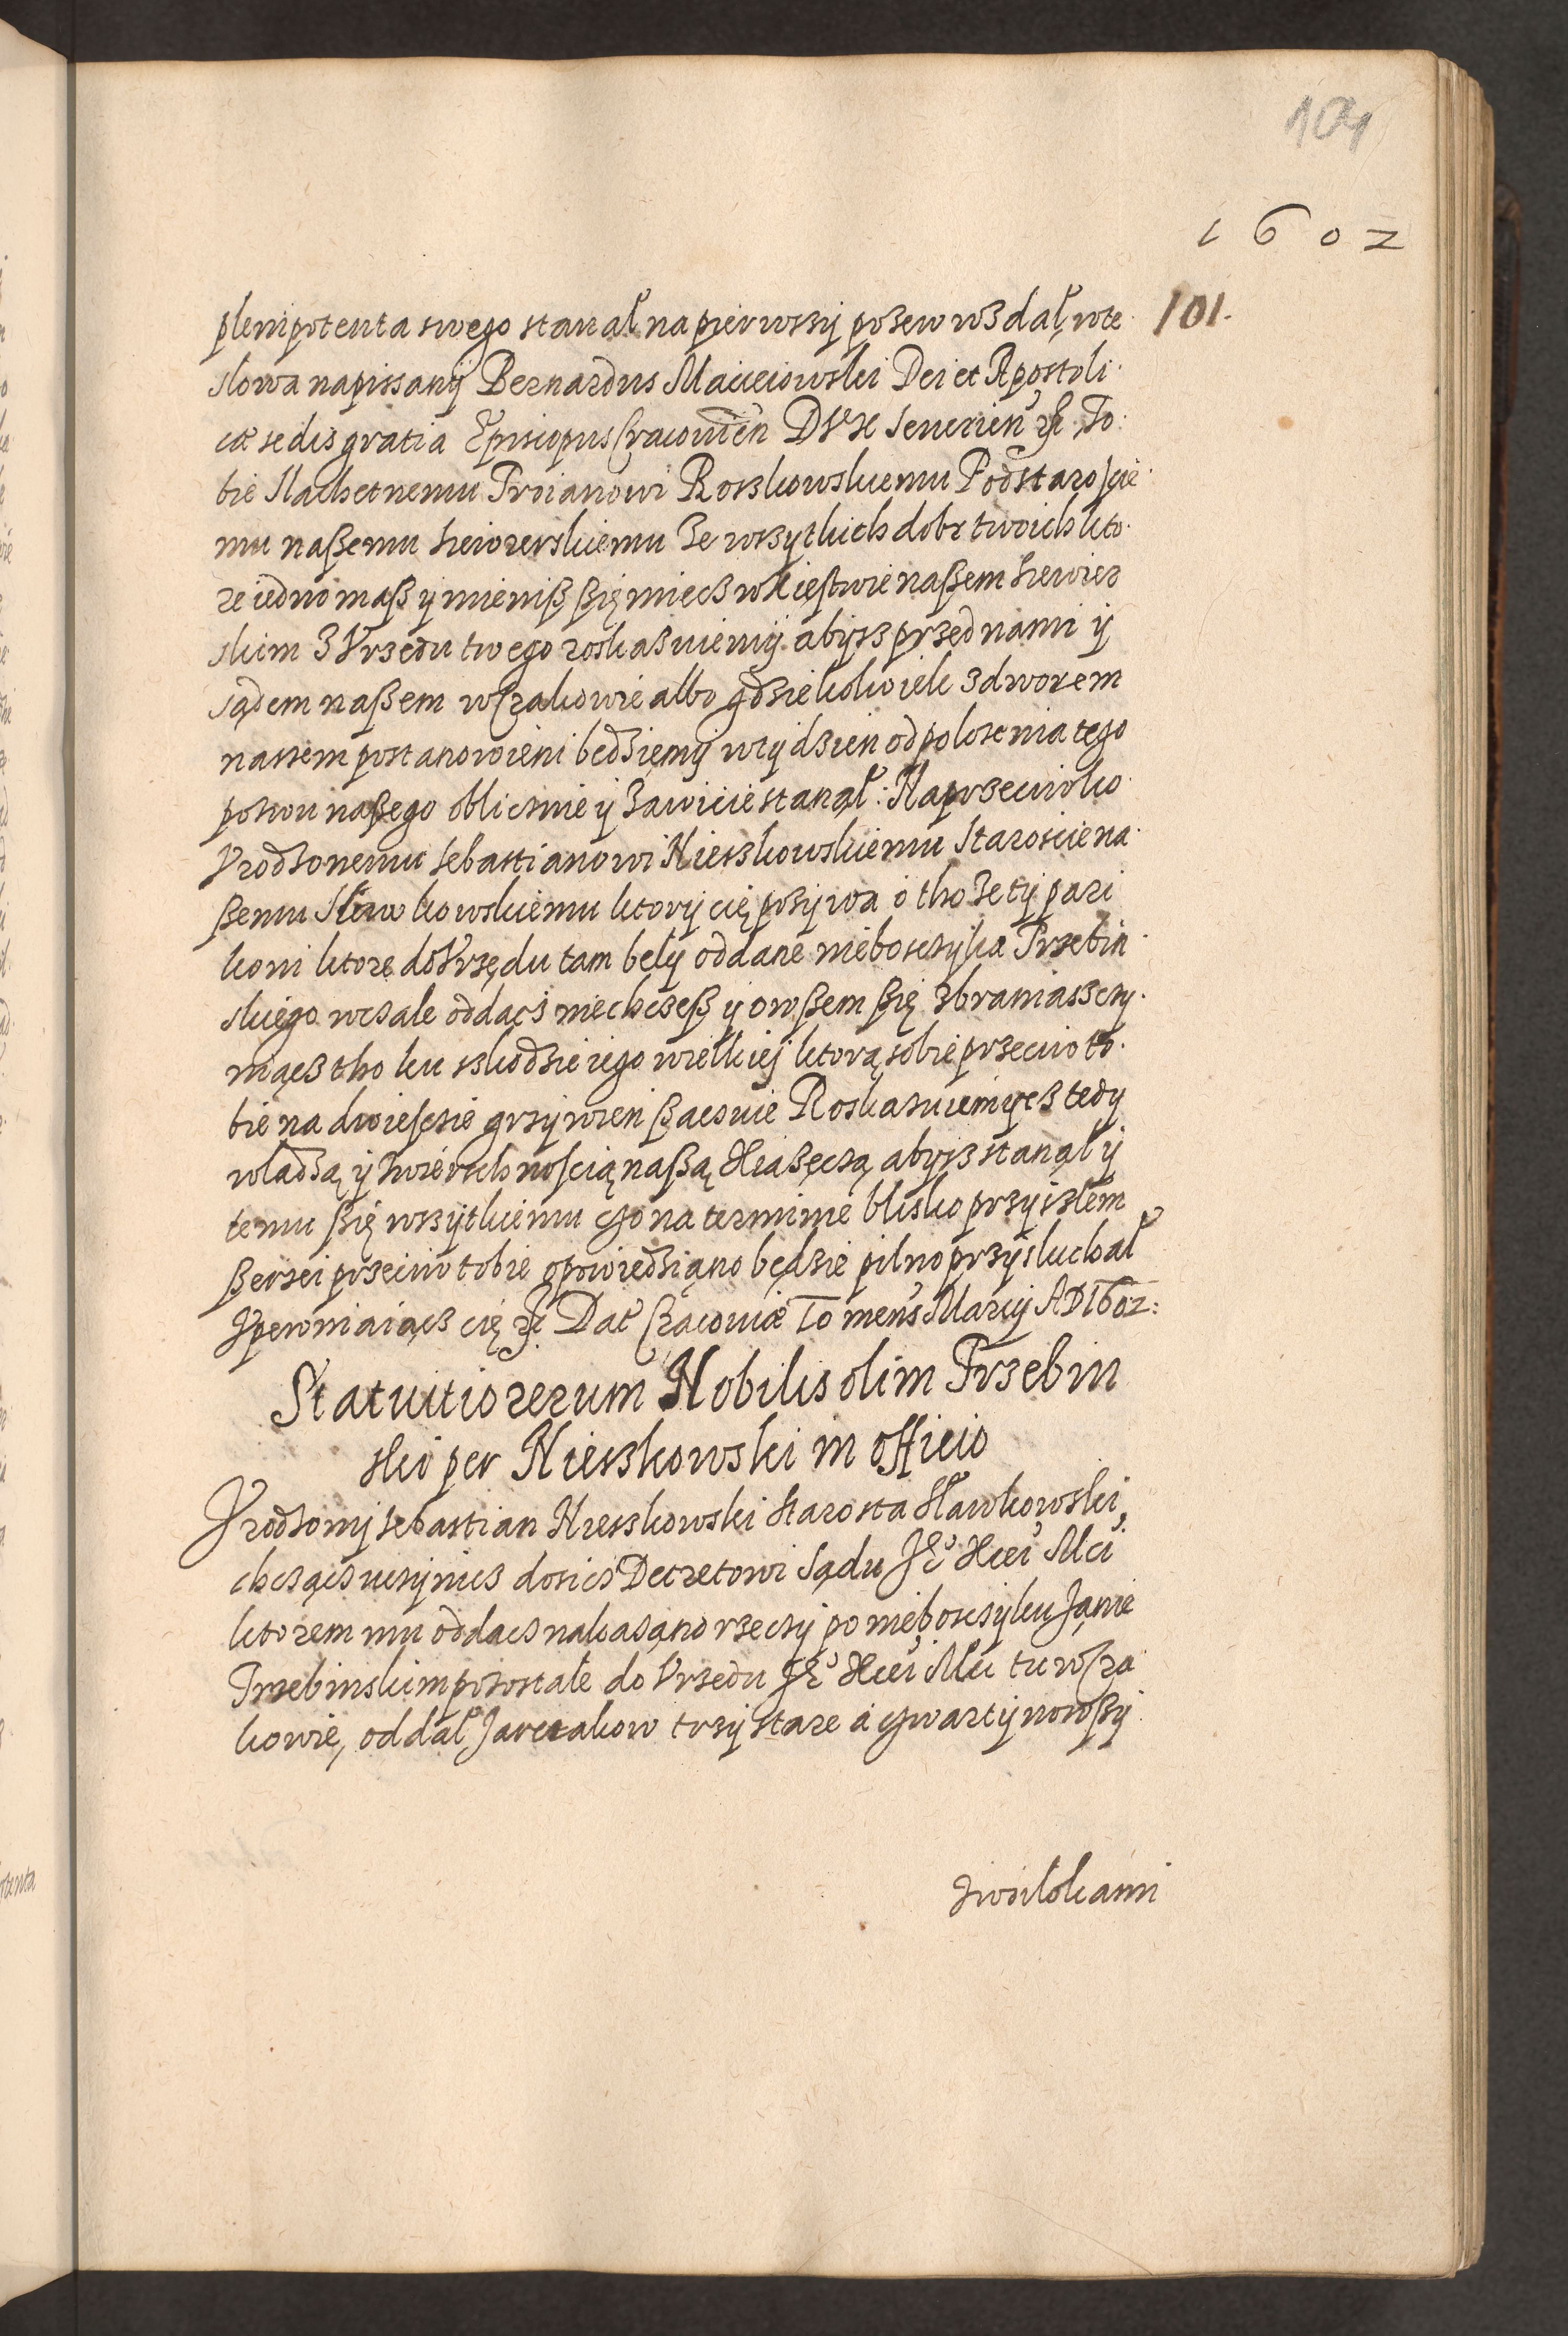 104
1602
101.
plenipotenta swego stanał na pierwszy pozew wzdał, wte
slowa napissany Bernardus Macieiowski Dei et Apostoli
cæ sedis gratia Episcopus Cracovien̄ DVX Severien̄ etc To
bie Slachetnemu Troianowi Roszkowskiemu Podstaroscie
mu naßemu siewierskiemu ze wszytkich dobr twoich kto
re iedno maß y mieniß ßię miecz w Xięstwie naßem siewier
skim z Vrzędu twego roskazuiemy abysz przed nami y
sądem naßem w Crakowie albo gdzie kolwiek z dworem
nassem postanowieni będziemy w tydzien od polozenia tego
pozwu naßego oblicznie y zawicie stanął: Naprzeciwko
Vrodzonemu sebastianowi Nieszkowskiemu Staroscie na
ßemu Slawkowskiemu ktory cię pozywa o tho ze ty pari
koni ktore do Vrzędu tam bely oddane nieboszczyka Trzebin
skiego wcale oddacz niechczeß y owßem ßię zbraniasz czy
niącz tho ku szkodzie iego wielkiej ktorą sobie przeciw to
bie na dwiescie grzywien ßacuie Roskazuiemycz tedy
wladzą y zwierchnoscią naßą Xiazęczą abysz stanął y
temu ßię wszytkiemu czo na terminie blisko przyszlem
ßerzei przeciw tobie opowiedziano będzie pilno przysluchał
Vpewniaiącz cię etc Dat Cracoviæ To mens Marcij AD 1602:
Statuitio rerum Nobilis olim Trzebin
ski per Nieszkowski in officio
Vrodzony sebastian Nieszkowski starosta slawkowski,
chcącz uczynicz dosicz Decretowi sądu JE Xcei Mci
ktorem mu oddacz nakazano rzeczy po nieboszczyku Janie
Trzebinskim pozostałe do Vrzędu JE Xcei Mci tu w Cra
kowie, oddał Jarczakow trzy stare a czwarty nowßy
zwoilokami